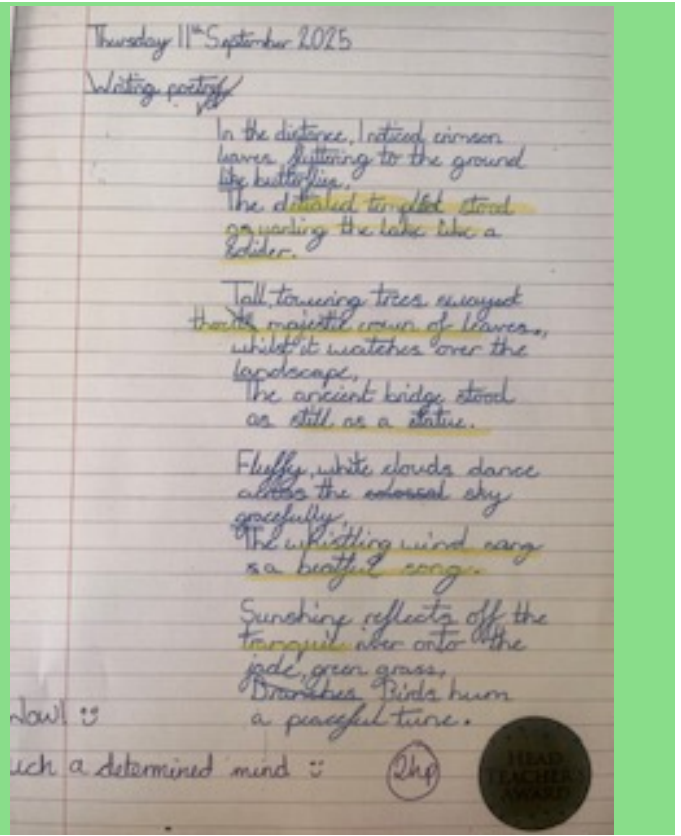 Thursday 11th September 2025
Writing poetry
In the distance, I noticed crimson
leaves fluttering to the ground
like butterflies,
The detialed stood
the lake like a
Solider.
Tall, towering trees swayed
majestic crown of leaves,
whilst it watches over the
landscape,
The ancient bridge stood
as still as a statue.
Fluffy, white clouds dance
across the colossal sky
gracefully,
The whistling wind sang
a song.
Sunshine reflects off the
tranquil river onto the
jade, green grass,
Branches Birds hum
a peaceful tune.
Wow! :)
uch a determined mind :)
2hp
HEAD
TEACHER
AWARD